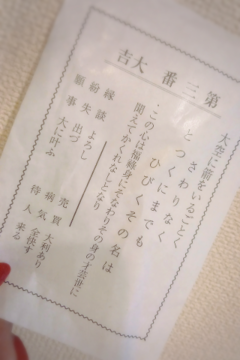 第三番大吉
大空に箭をいるごとく
さわりなく
とつくにまでも
ひびくその名は
この心は福禄身にそなわりその身の才芸世に
聞えてかくれなしとなり
縁談 よろし
紛失 出づ
願事 大に叶ふ
売買 大利あり
病気 全快す
待人 来る